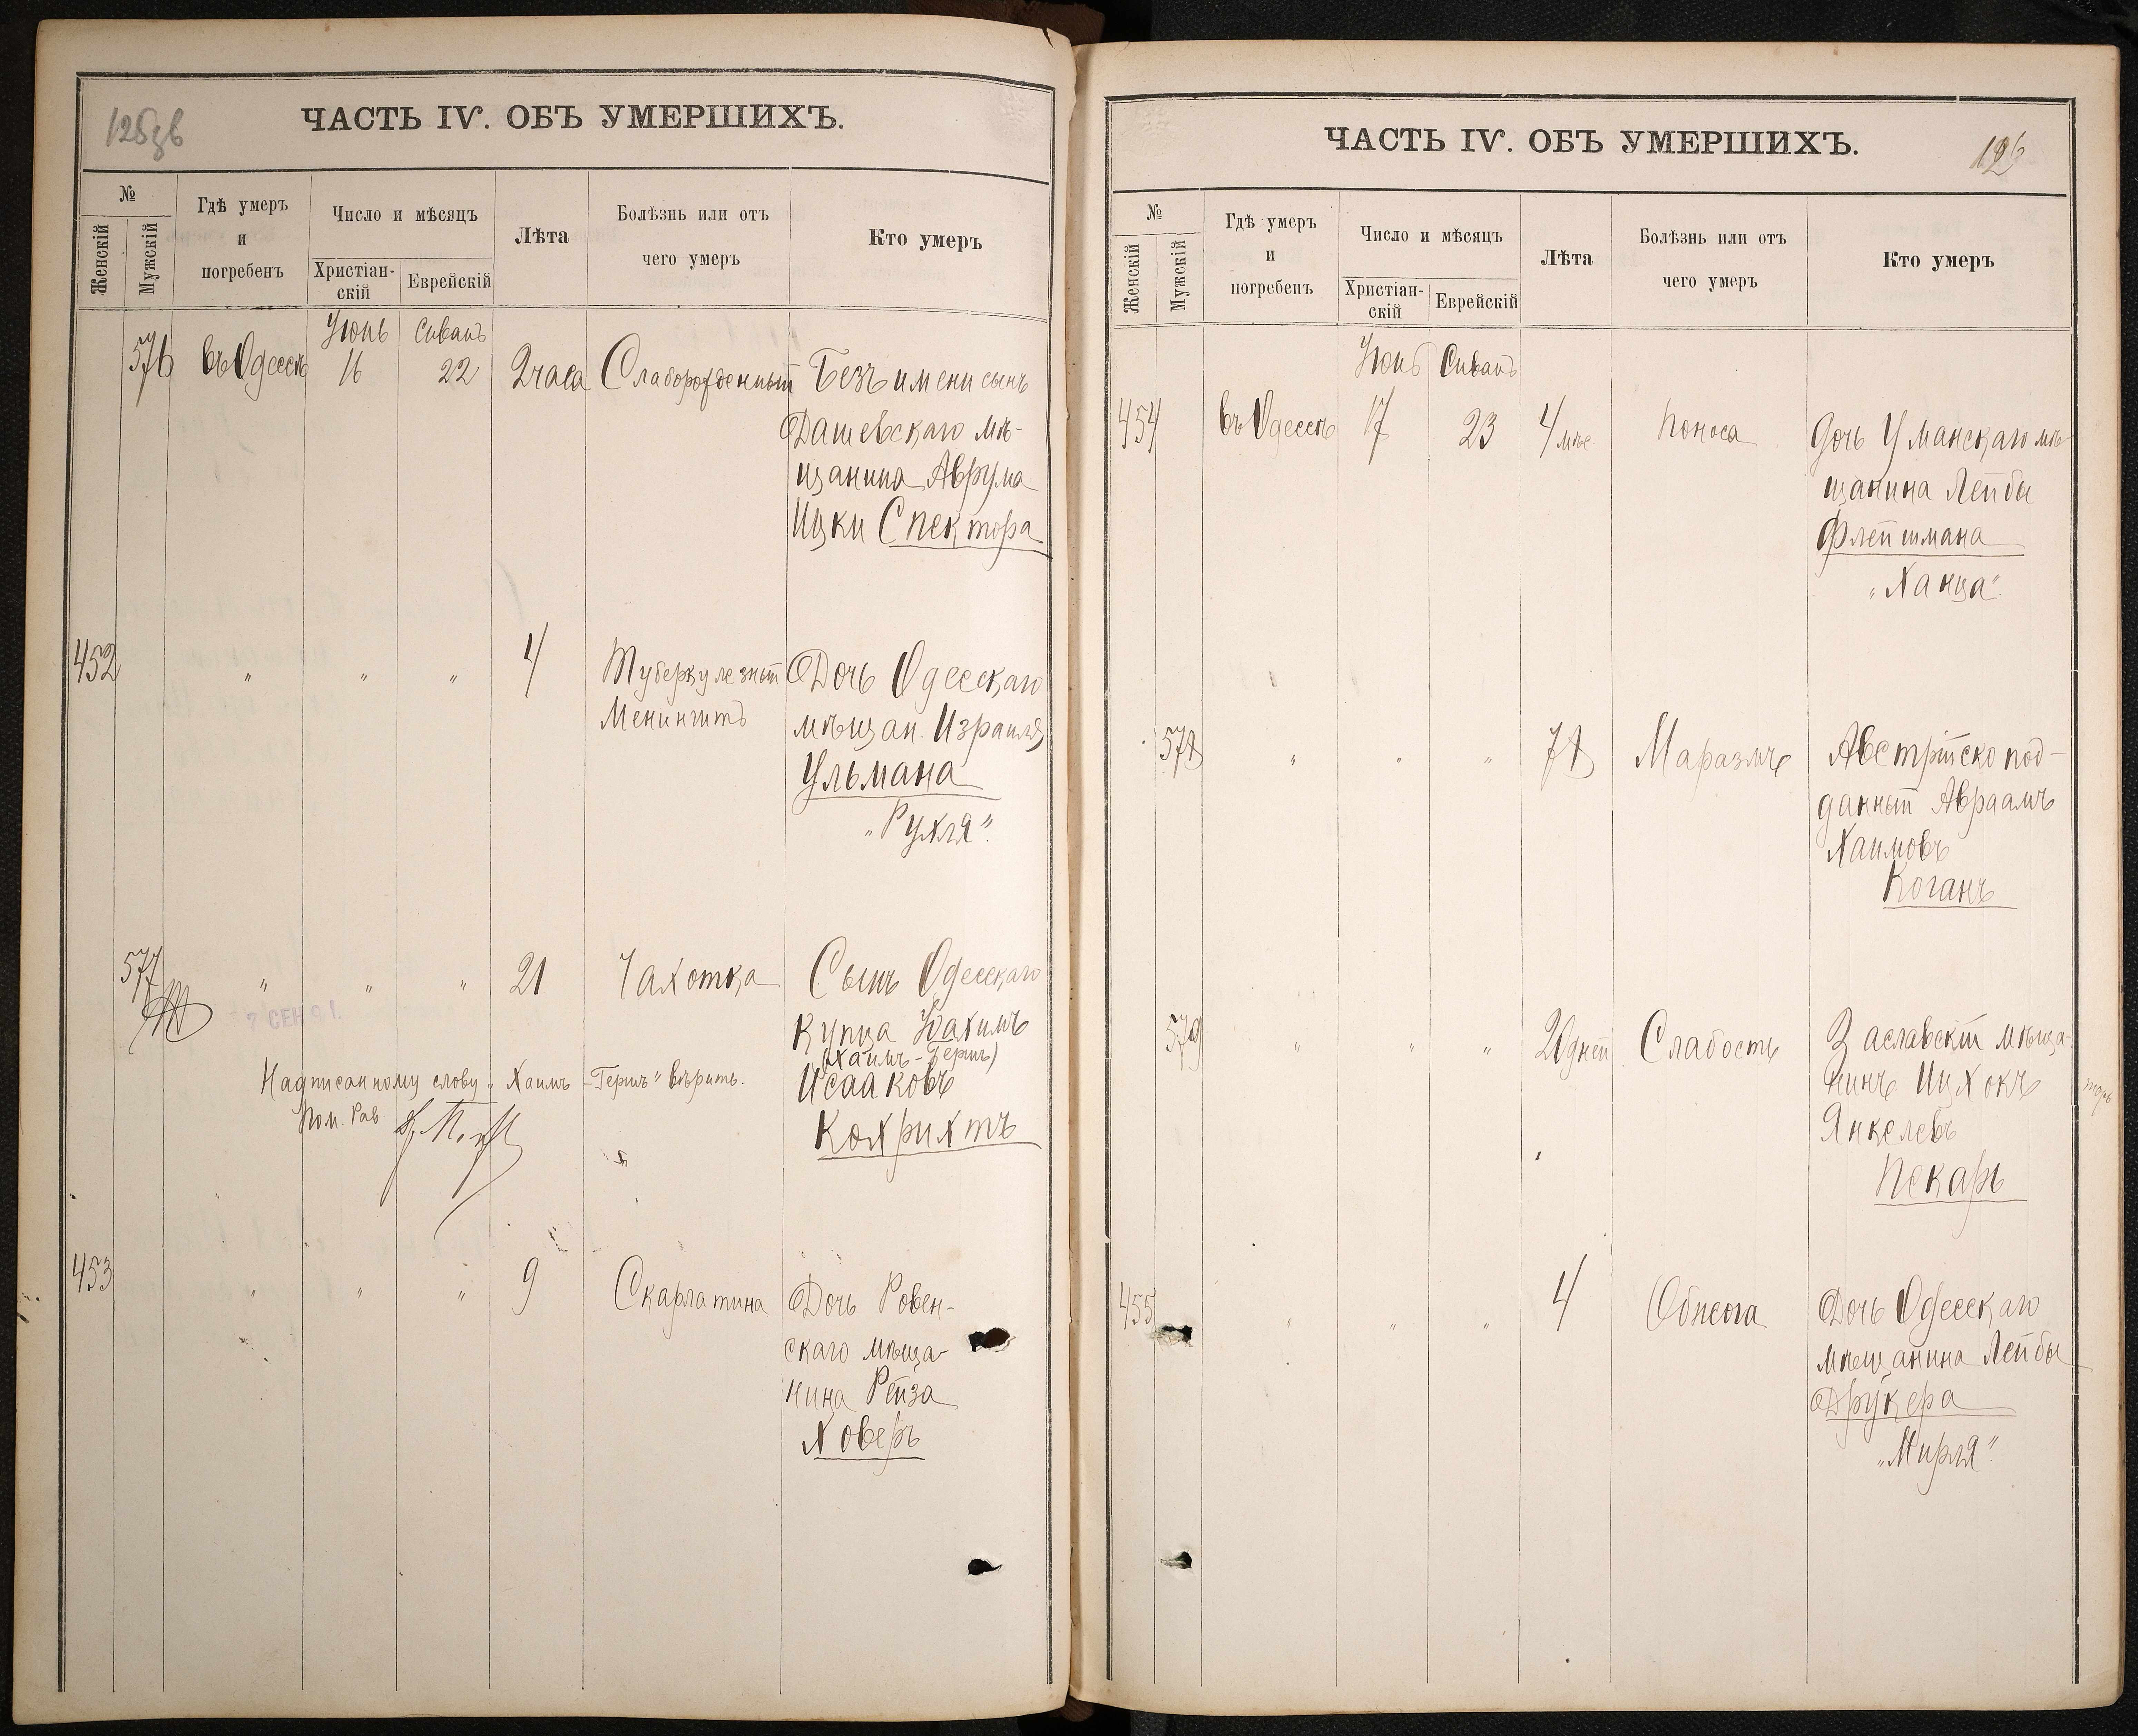 ЧАСТЬ IV. ОБЪ УМЕРШИХЪ.
№
Женскій
Мужскій
Гдѣ умеръ
и
погребенъ
Число и мѣсяцъ
Христіан-
скій
Еврейскій
Лѣта
Болѣзнь или отъ
чего умеръ
Кто умеръ
Іюнь Сиванъ
576 въ Одессѣ 16 22 2 часа Слаборожденный Безъ имени сынъ
Дашевскаго мѣ-
щанина Аврума
Ицки Спектора
452 " " " 4 Туберкулезный Дочь Одесскаго
Менингитъ мѣщан. Израиля
Ульмана
„Рухля“.
577 " " " 21 Чахотка Сынъ Одесскаго
купца Іоахимъ
(Хаимъ-Гершъ)
7 СЕН 91.
Исааковъ
Надписанному слову „Хаимъ-Гершъ“ вѣрить.
Пом. Рав.
Кохрихтъ
453 " " " 9 Скарлатина Дочь Ровен-
скаго мѣща-
нина Рейза
Ховеръ
ЧАСТЬ IV. ОБЪ УМЕРШИХЪ.
126
№
Женскій
Мужскій
Гдѣ умеръ
и
погребенъ
Число и мѣсяцъ
Христіан-
скій
Еврейскій
Лѣта
Болѣзнь или отъ
чего умеръ
Кто умеръ
Іюнь Сиванъ
454 въ Одессѣ 17 23 4 мѣс Поноса Дочь Уманскаго мѣ-
щанина Лейбы
Флейшмана
„Ханца“.
578 " " " Маразмъ Австрійско под-
данный Авраамъ
Хаимовъ
Коганъ
579 " " " 20 дней Слабость Заславскій мѣща-
нинъ Ицхокъ
Янкелевъ
Пекарь
455 " " " 4 Обжога Дочь Одесскаго
мѣщанина Лейбы
Друкера
„Мирля“.